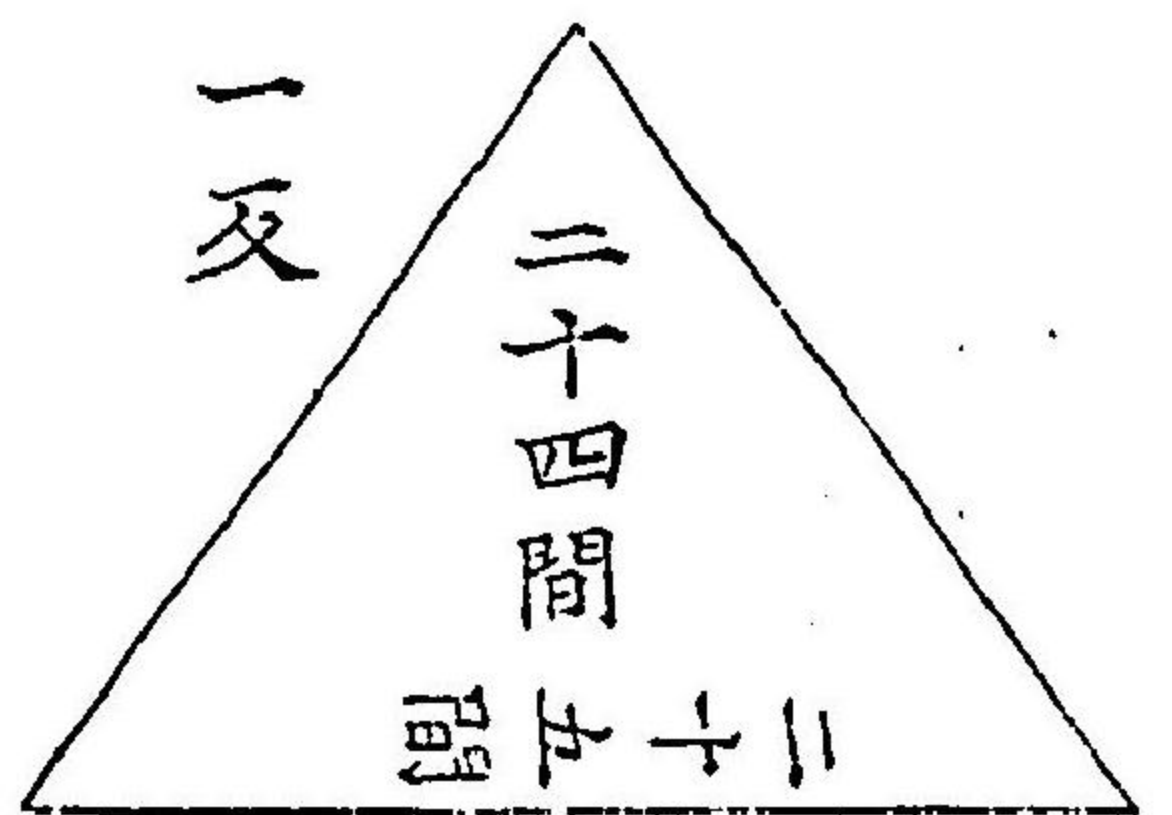 一反
二十四間
二十五間